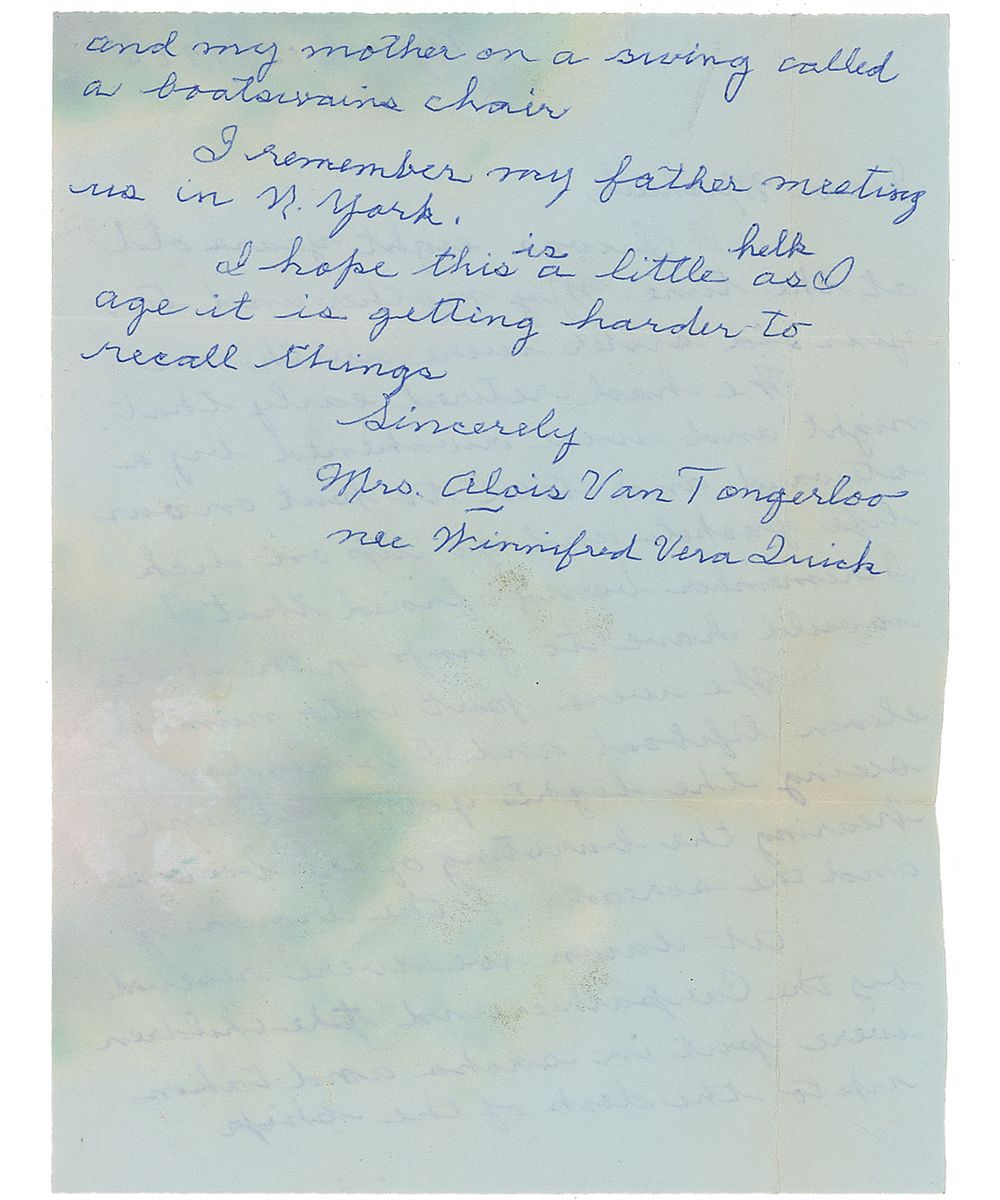 and my mother on a swing called
a boatswains chair
I remember my father meeting
us in N. York.
I hope this is a little help as I
age it is getting harder to
recall things
Sincerely
Mrs. Alois Van Tongerloo
nee Winnifred Vera Quick